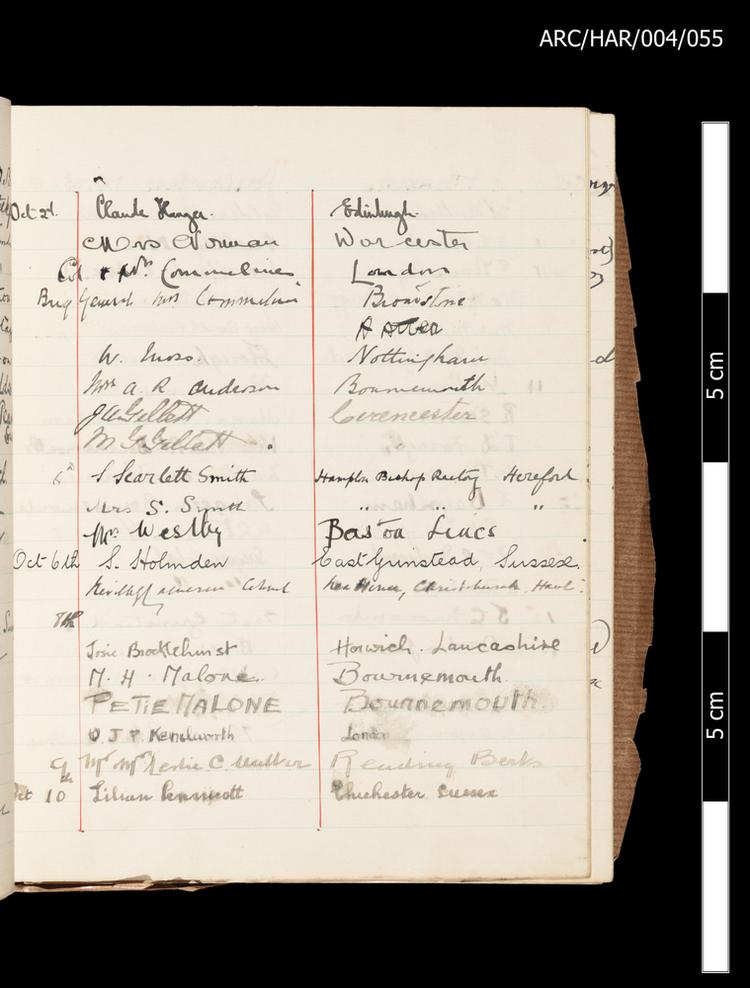 ARC/HAR/004/055
Oct 2d. Claude Hanger. Edinburgh.
Mrs Norman Worcester
Col & Mrs Commelines London
Brig General Mrs Commeline Broadstone
W. Moss Nottingham
Mrs A. R. Anderson Bournemouth
J W Gillett Cirencester
M G Gillett.
6th S Scarlett Smith Hampton Bishop Rectory Hereford
Mrs S. Smith " " "
Mrs Westby Baston Lincs
Oct 6th S. Holmden East Grinstead, Sussex.
Christchurch, Hants.
7th
Josie Brocklehurst Horwich. Lancashire
M. H. Malone. Bournemouth.
PETIE MALONE Bournemouth.
O J P. Kenilworth London
9th Mr Mrs Leslie C. Reading Berks
Oct 10 Lilian Chichester Sussex
5 cm
5 cm